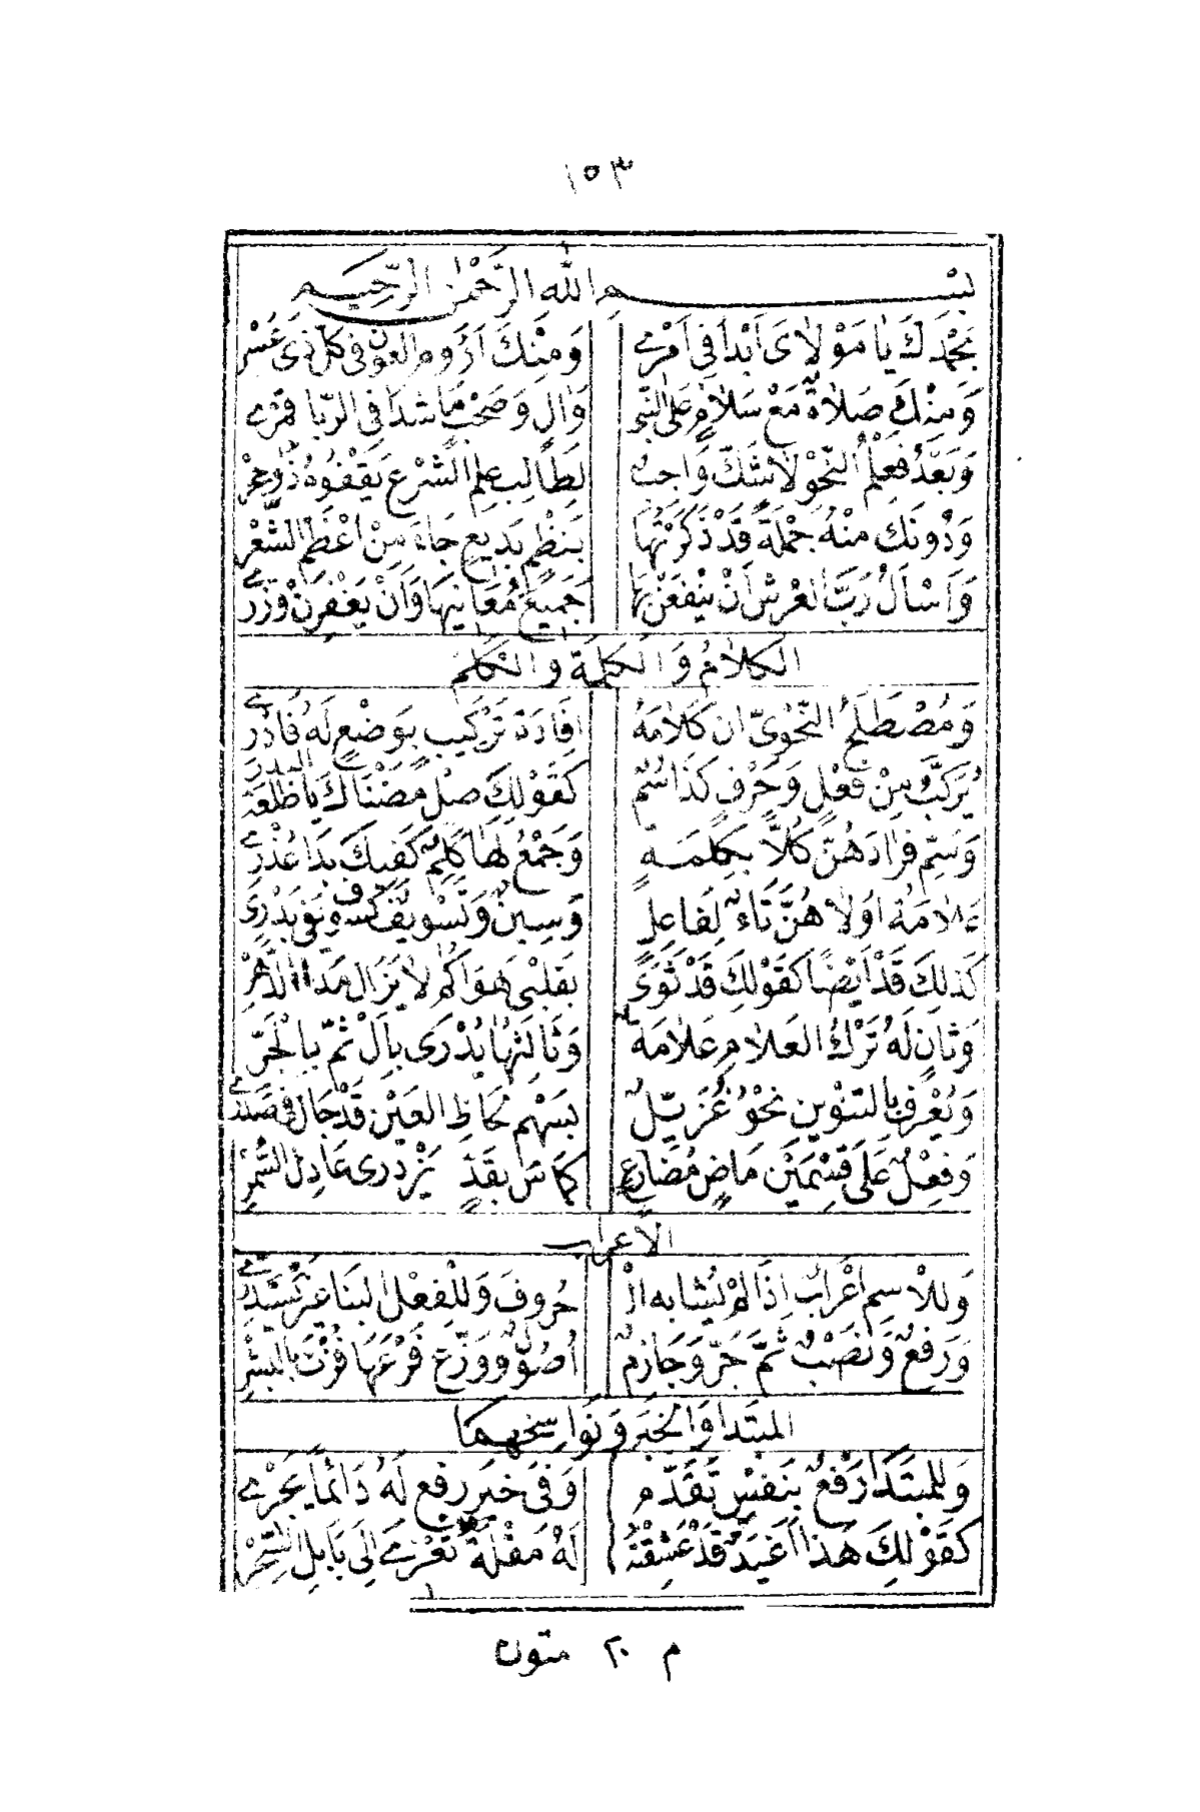 ١٥٣
بسم الله الرحمن الرحيم
بِحَمْدِكَ يَا مَوْلَاىَ اَبْدَأُ فِى اَمْرِى وَمِنْكَ اَرُومُ العَوْنَ فى كلّ ذى عُسْرِ
وَمِنْكَ صَلَاةٌ مَعْ سَلَامٍ عَلَى النَّبِى وَآلٍ وَصَحْبٍ مَا شَدَا فِى الرُّبَا قُمْرِى
وَبَعْدُ فَعِلْمُ النَّحْوِ لَا شَكَّ وَاجِبٌ لِطَالِبِ عِلْمِ الشَّرْعِ يَقْفُوهُ ذُو حِجْرِ
وَدُونَكَ مِنْهُ جُمْلَةً قَدْ ذَكَرْتُهَا بِنَظْمٍ بَدِيعٍ جَاءَ مِنْ اَعْظَمِ الشِّعْرِ
وَاَسْأَلُ رَبَّ العَرْشِ اَنْ يَنْفَعَنْ بِهَا جَمِيعَ مُعَانِيهَا وَاَنْ يَغْفِرَنْ وِزْرِى
الكَلَامُ وَالكَلِمَةُ وَالكَلِمُ
وَمُصْطَلَحُ النَّحْوِىّ ان كَلَامَهُ افَادَةُ تَرْكِيبٍ بِوَضْعٍ لَهُ فَادْرِى
يُرَكَّبُ مِنْ فِعْلٍ وَحَرْفٍ كَذَا اسْمٌ كَقَوْلِكَ صِلْ مُضْنَاكَ يَا طَلْعَةَ البدر
وَسَمِّ فُرَادَهُنَّ كُلًّا بِكِلْمَةٍ وَجَمْعٌ لَهَا كَلِمٌ كَفِيكَ بَدَا عُذْرِى
عَلَامَةُ اُولَاهُنَّ تَاءٌ لِفَاعِلٍ وَسِينٌ وَتَسْوِيفٌ كسوف يَدْرِى
كَذلِكَ قَدْ اَيْضًا كَقَوْلِكَ قَدْ ثَوَى بِقَلْبِى هَوَاكُمْ لَا يَزَالُ مَدَا الدَّهْرِ
وَثَانٍ لَهُ تَرْكُ العَلَامِ عَلَامَةٌ وَثَالِثُهَا يُدْرَى بِاَلْ ثُمَّ بِالْجَرِّ
وَيُعْرَفُ بِالتَّنْوِينِ نَحْوُ غُزَيِّلٌ بِسَهْمِ لَحَاظِ العَيْنِ قَدْ جَالَ فى صَدْرِى
وَفِعْلٌ عَلَى قِسْمَيْنِ مَاضٍ مُضَارِعٍ كَمَاسَ بِقَدٍّ يَزْدَرِى عَادِلَ السُّمْرِ
الاعراب
وَلِلْاِسْمِ اِعْرَابٌ اِذَا لَمْ يُشَابِهِ الْ حُرُوفَ وَلِلْفِعْلِ البِنَا
وَرَفْعٌ وَنَصْبٌ ثُمَّ جَرٌّ وَجَازِمٌ اُصُولٌ وَوَزِّعْ فَرْعَهَا فُزْتَ بالبشر
المبتدا وَالخبَر وَنَوَاسِخهمَا
وَلِلْمُبْتَدَا رَفْعٌ بِنَفْسٍ تَقَدَّمَ وَفى خَبَرٍ رَفْعٌ لَهُ دَائِمًا يَجْرِى
كَقَوْلِكَ هَذَا اَغْيَدٌ قَدْ عَشِقْتُهُ لَهُ مُقْلَةٌ تُعْزَى اِلَى بَابِلِ السِّحْرِ
م ٢٠ متون